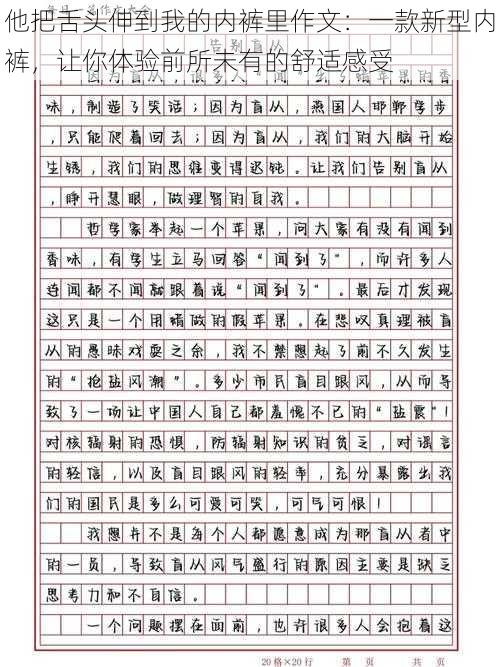 他把舌头伸到我的内裤里作文：一款新型内
裤，让你体验前所未有的舒适感受
告别盲从
味，制造了笑话；因为盲从，燕国人邯郸学步
，只能爬着回去；因为盲从，我们的大脑开始
生锈，我们的思维变得迟钝。让我们告别盲从
，睁开慧眼，做理智的自我。
哲学家举起一个苹果，问大家有没有闻到
香味，有学生立马回答“闻到了”，而许多人
连闻都不闻就跟着说“闻到了”。最后才发现
这只是一个用蜡做的假苹果。在悲叹真理被盲
从的愚昧戏耍之余，我不禁想起了前不久发生
的“抢盐风潮”。多少市民盲目跟风，从而导
致了一场让中国人自己都羞愧不已的“盐震”！
对核辐射的恐惧，防辐射知识的贫乏，对谣言
的轻信，以及盲目跟风的轻率，充分暴露出我
们的国民是多么可爱可笑，可气可恨！
我想并不是每个人都愿意成为那盲从者中
的一员，导致盲从风气盛行的原因主要是缺乏
思考力和不自信。
一个问题摆在面前，也许很多人会抱着这
20格×20行 第 页 共 页